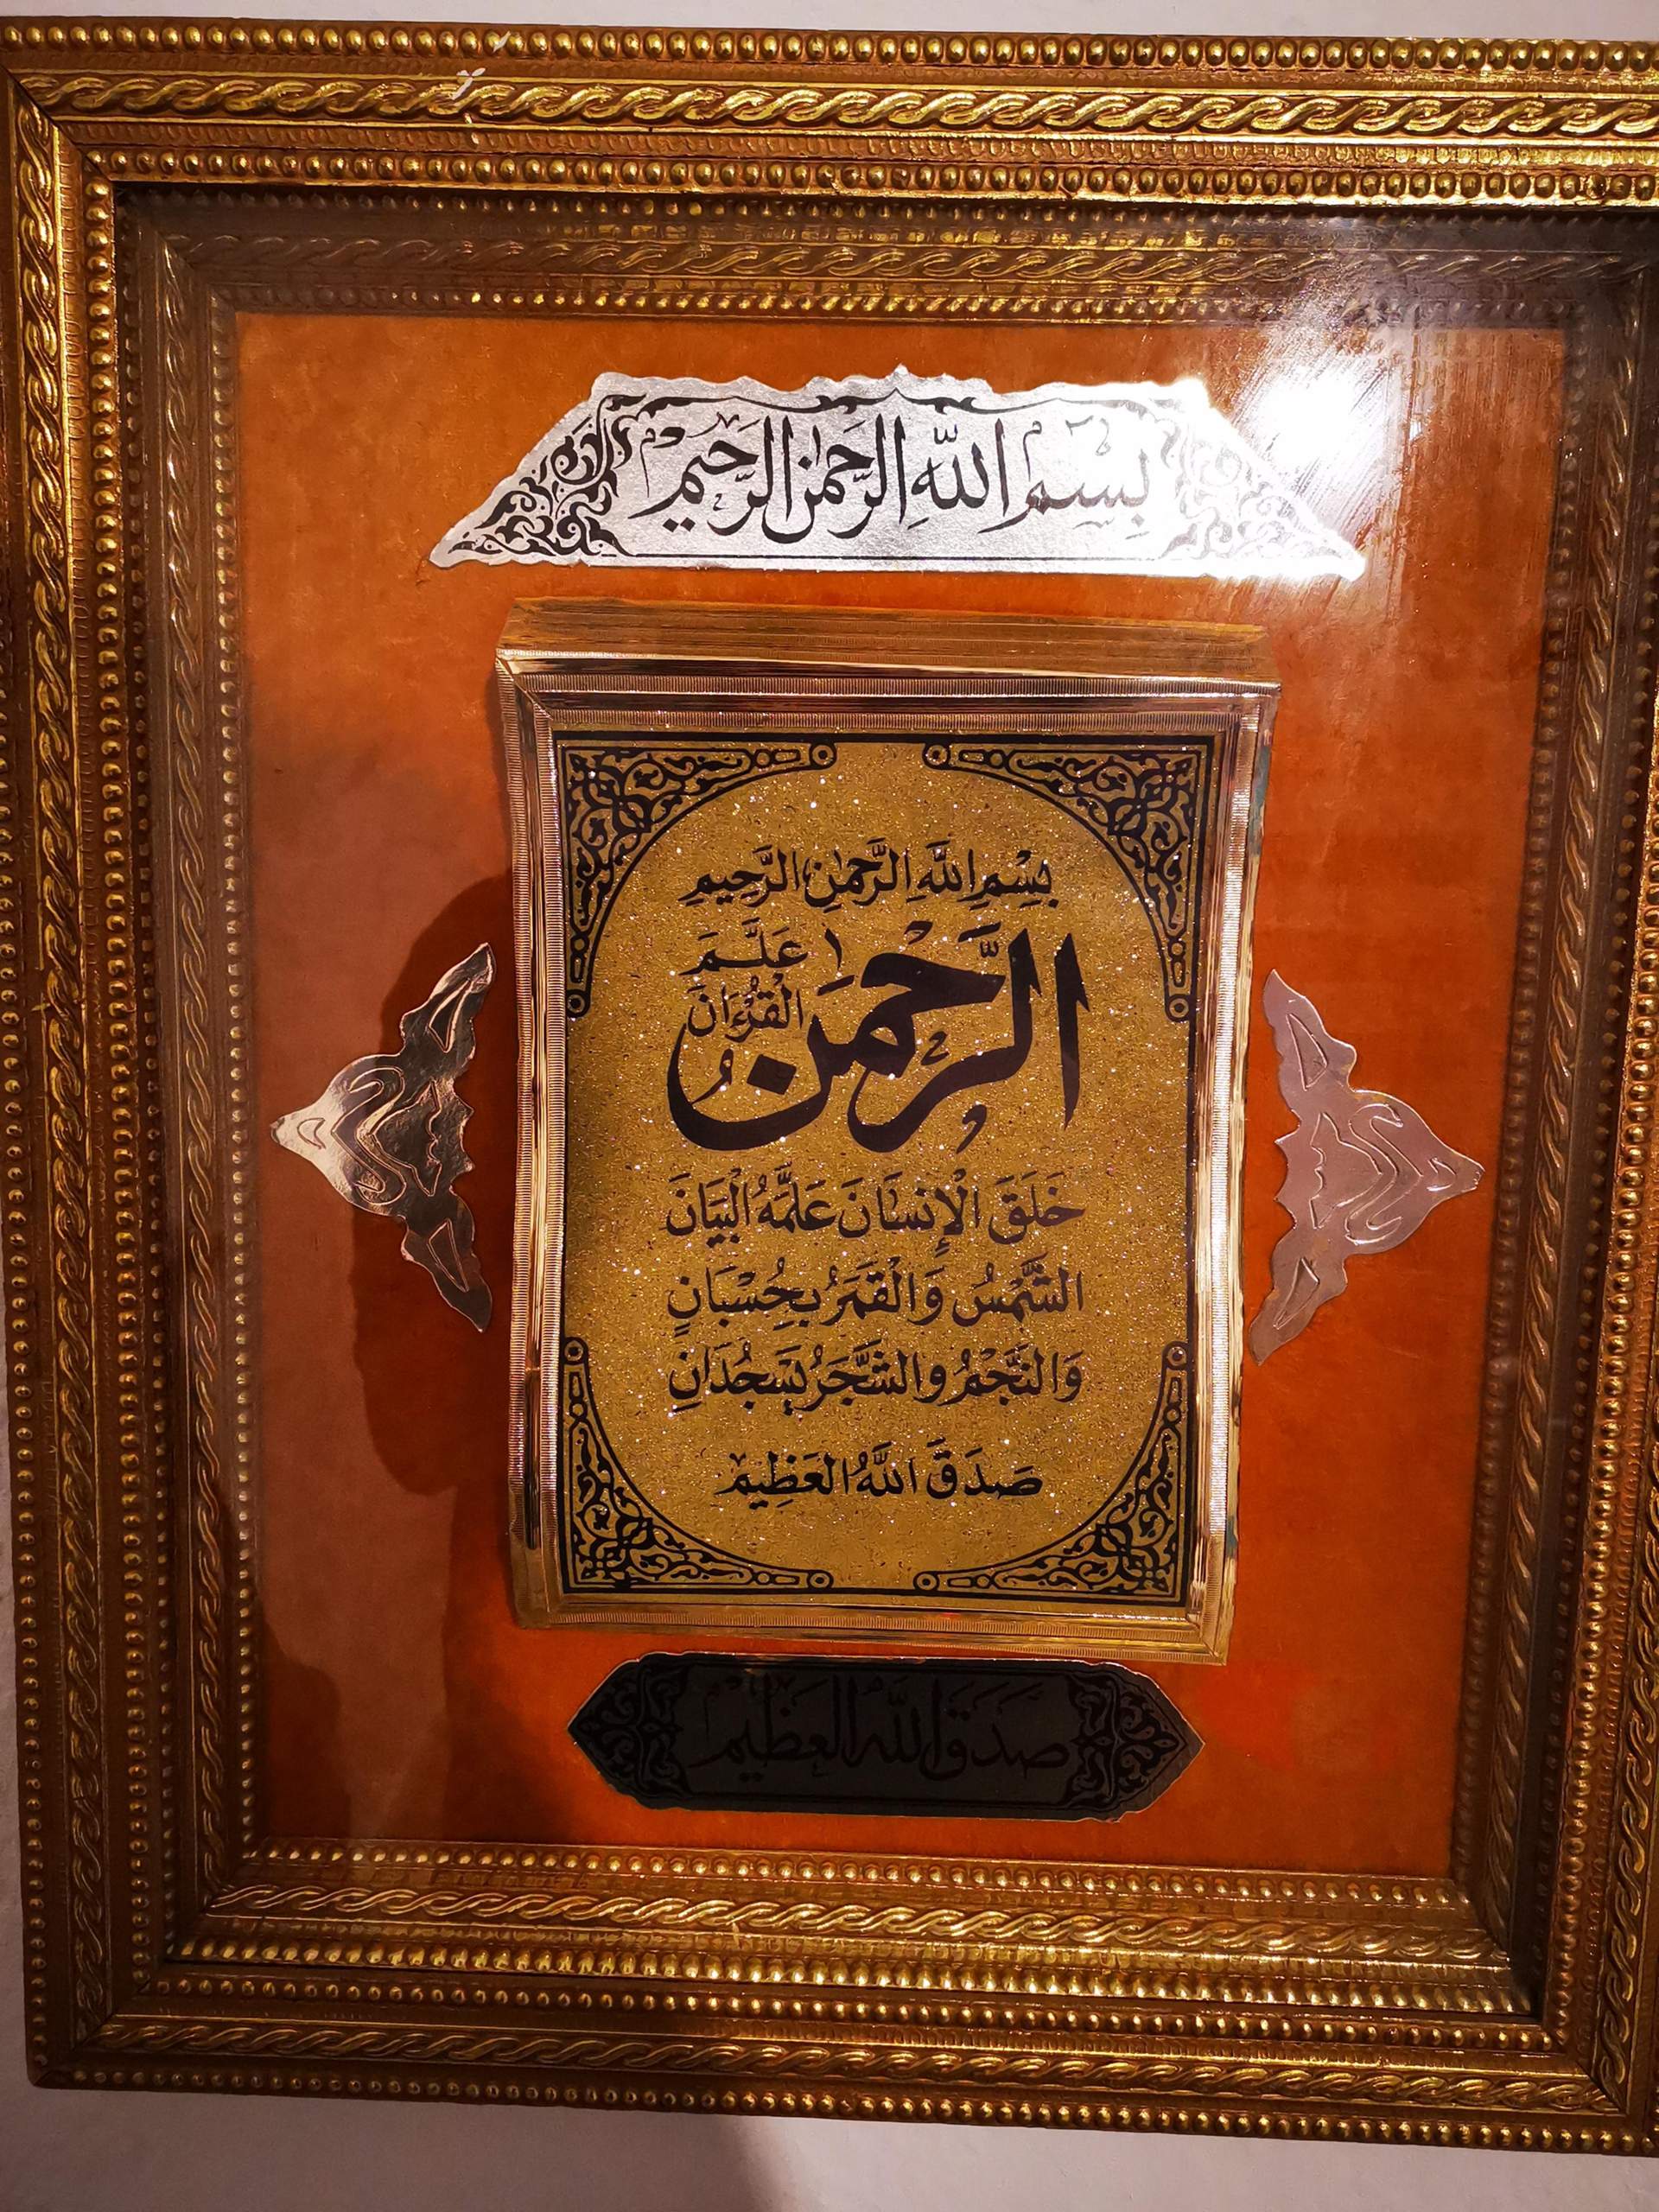 بسم الله الرحمن الرحيم
بِسْمِ اللَّهِ الرَّحْمٰنِ الرَّحِيمِ
الرَّحْمٰنُ عَلَّمَ
الْقُرْءَانَ
خَلَقَ الْإِنسَانَ عَلَّمَهُ الْبَيَانَ
الشَّمْسُ وَالْقَمَرُ بِحُسْبَانٍ
وَالنَّجْمُ وَالشَّجَرُ يَسْجُدَانِ
صَدَقَ اللَّهُ الْعَظِيمُ
صَدَقَ اللَّهُ الْعَظِيْم